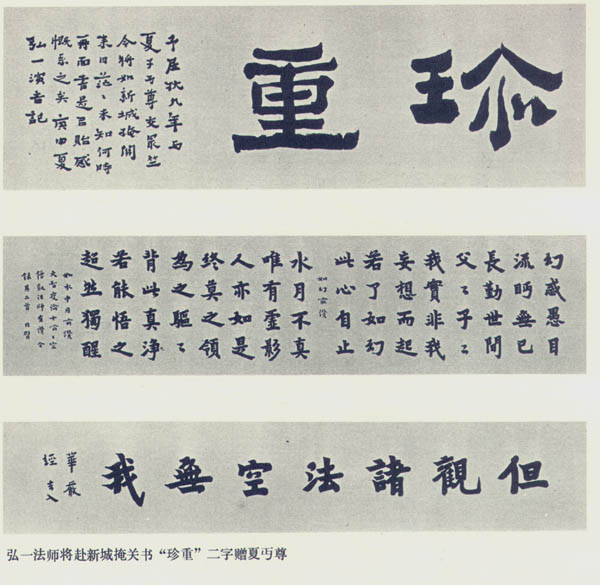 珍重
予居杭九年与
夏子丏尊交最竺
今將如新城掩關
来日茫〻未知何時
再面書是以貽感
慨系之矣庚申夏
弘一演音記
幻惑愚目
流眄無已
長勤世間
父〻子〻
我實非我
妄想而起
若了如幻
此心自止
如幻喻讚
水月不真
唯有靈影
人亦如是
終莫之領
為之驅〻
背此真淨
若能悟之
超然獨醒
如水中月喻讚
大智度論十喻〻空
但觀諸法空無我
華嚴
經
弘一法师将赴新城掩关书“珍重”二字赠夏丏尊